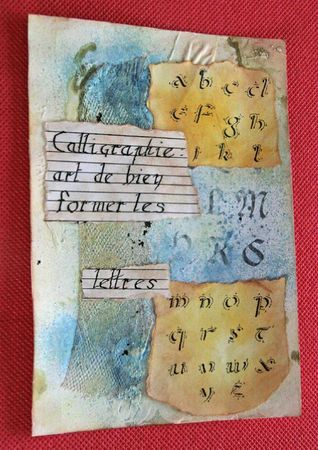 a b c d
e f g h
i k l
Calligraphie:
art de bien
former les
L M
K S
lettres
m n o p
q r s t
u v w x
y z